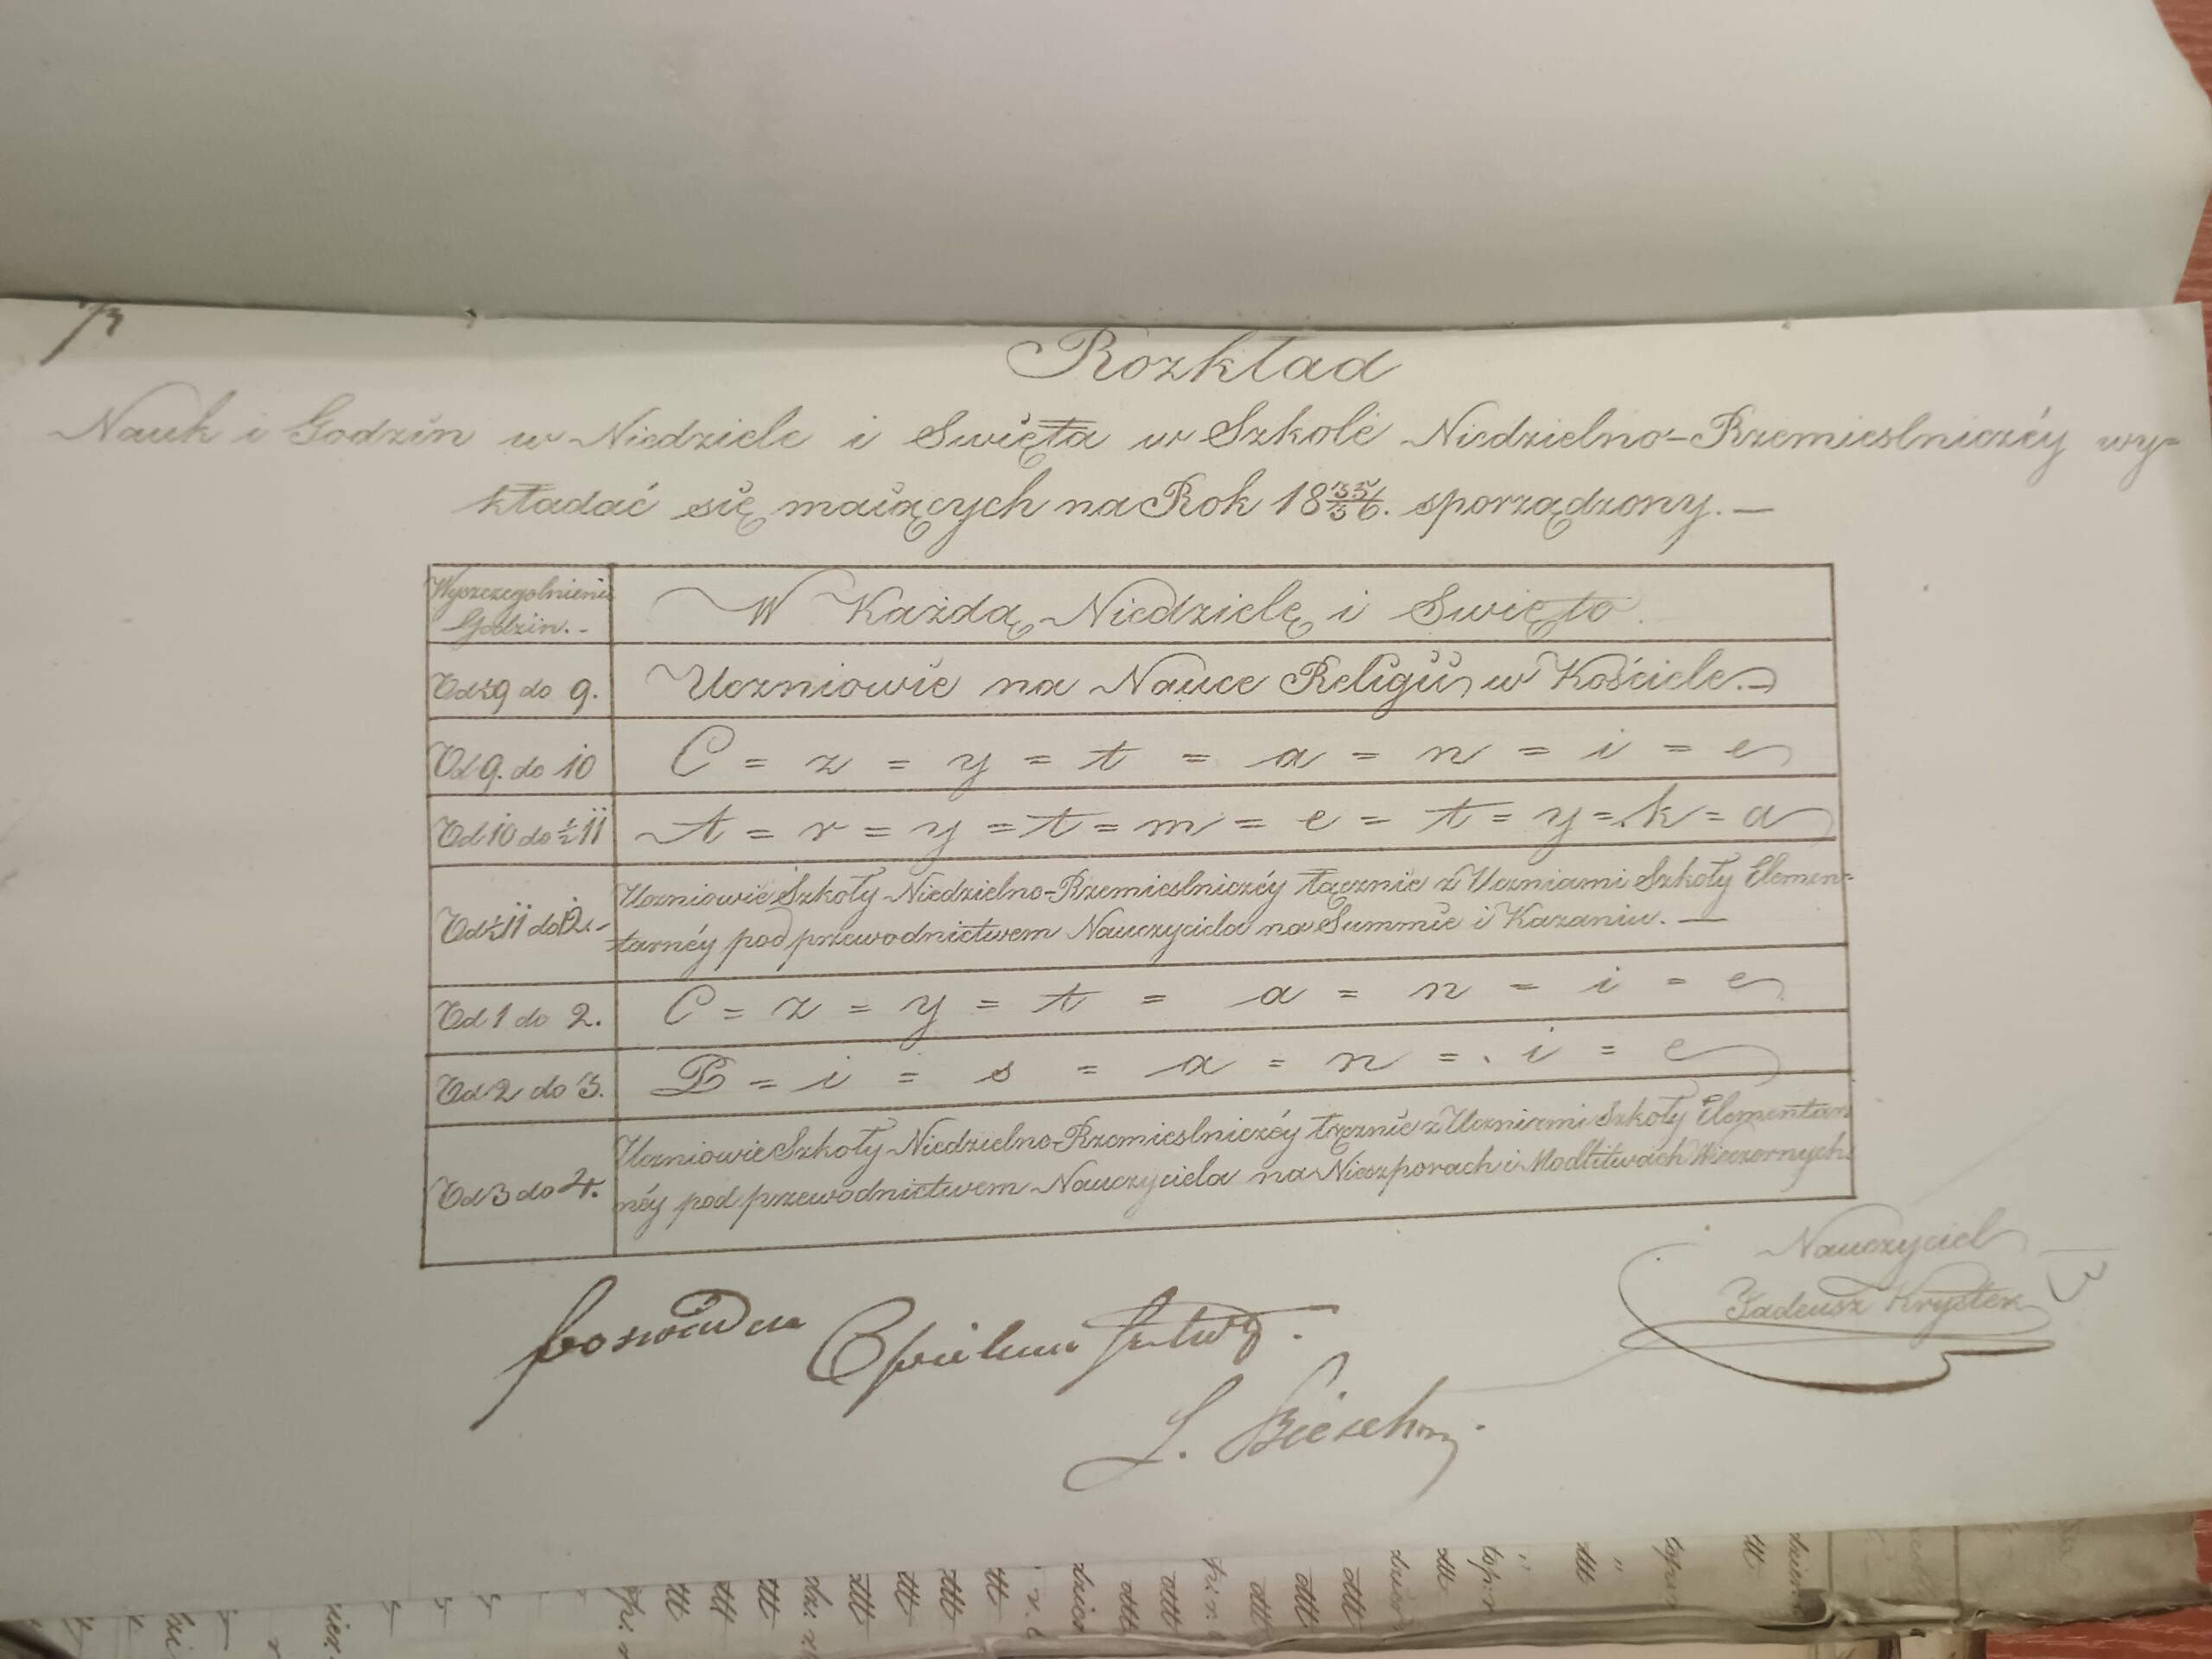 73
Rozkład
Nauk i Godzin w Niedziele i Swięta w Szkole Niedzielno-Rzemieslniczéy wy=
kładać się maiących na Rok 18 35/36. sporządzony. —
Wyszczegolnienie
Godzin. -
W Każdą Niedzielę i Swięto.
Od ½9 do 9.
Uczniowie na Nauce Religii w Kościele. —
Od 9. do 10
C = z = y = t = a = n = i = e
Od 10 do ½11
A = r = y = t = m = e = t = y = k = a
Od ½11 do 12. -
Uczniowie Szkoły Niedzielno-Rzemieslniczéy łącznie z Uczniami Szkoły Elemen=
tarnéy pod przewodnictwem Nauczyciela na Summie i Kazaniu. —
Od 1 do 2.
C = z = y = t = a = n = i = e
Od 2 do 3.
P = i = s = a = n = i = e
Od 3 do 4.
Uczniowie Szkoły Niedzielno-Rzemieslniczéy łącznie z Uczniami Szkoły Elementar
néy pod przewodnictwem Nauczyciela na Nieszporach i Modlitwach Wieczornych.
Nauczyciel
Tadeusz Krystek
poswiadcza Opiekun
L.